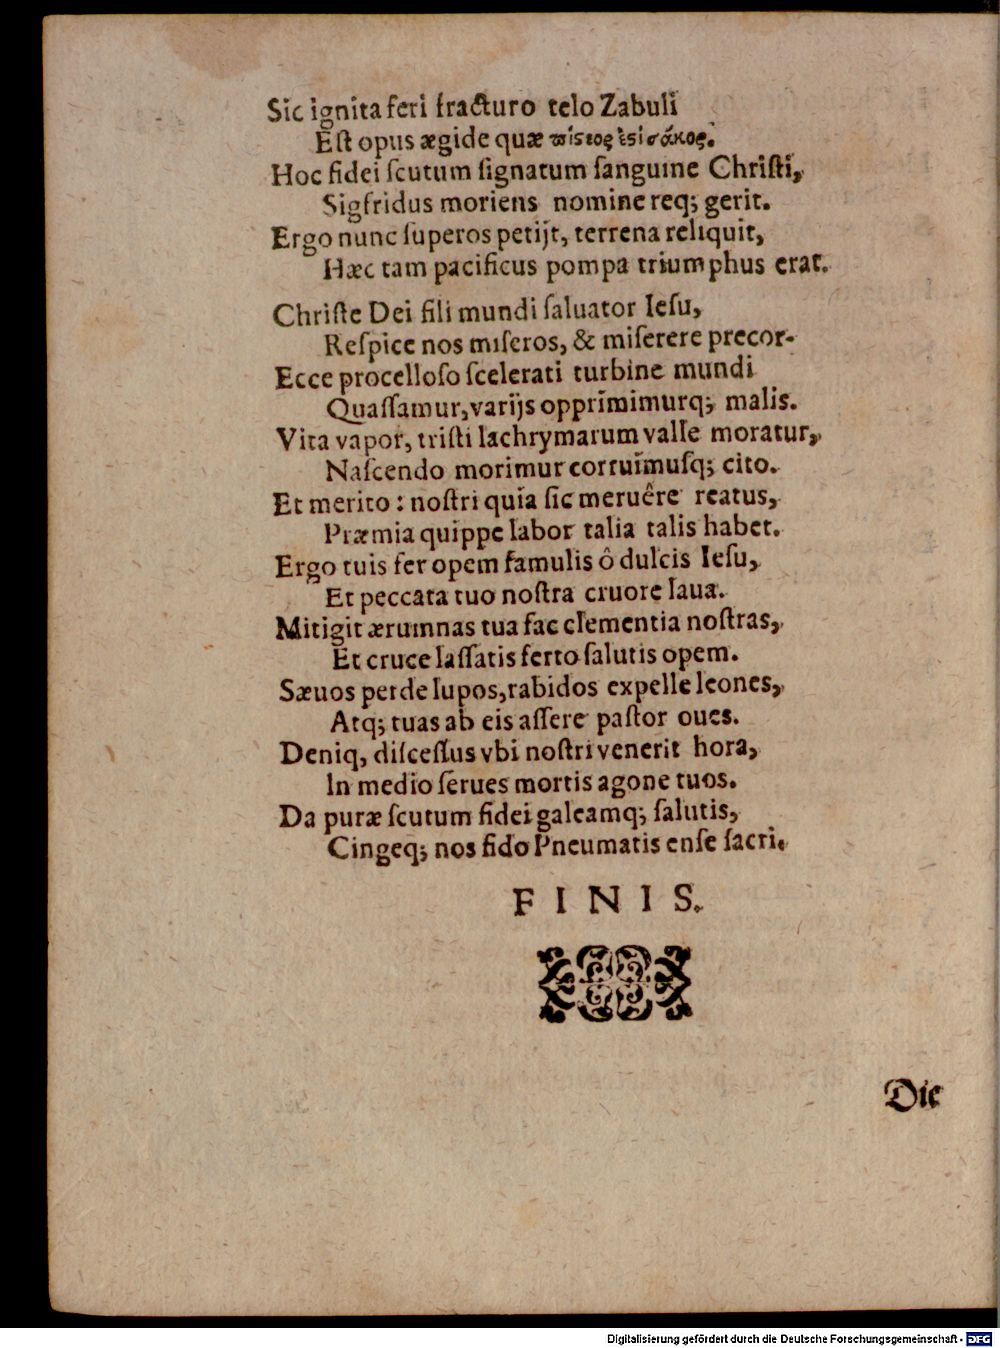 Sic ignita feri fracturo telo Zabuli
Eſt opus ægide quæ ϖίστος ἐςὶ σάκος.
Hoc fidei ſcutum ſignatum ſanguine Chriſti,
Sigfridus moriens nomine req; gerit.
Ergo nunc ſuperos petijt, terrena reliquit,
Hæc tam pacificus pompa triumphus erat.
Chriſte Dei fili mundi ſaluator Ieſu,
Reſpice nos miſeros, & miſerere precor.
Ecce procelloſo ſcelerati turbine mundi
Quaſſamur, varijs opprimimurq; malis.
Vita vapor, triſti lachrymarum valle moratur,
Naſcendo morimur corruimuſq; cito.
Et merito: noſtri quia ſic meruêre reatus,
Præmia quippe labor talia talis habet.
Ergo tuis fer opem famulis ô dulcis Ieſu,
Et peccata tuo noſtra cruore laua.
Mitigit ærumnas tua fac clementia noſtras,
Et cruce laſſatis ferto ſalutis opem.
Sæuos perde lupos, rabidos expelle leones,
Atq; tuas ab eis aſſere paſtor oues.
Deniq, diſceſſus vbi noſtri venerit hora,
In medio ſerues mortis agone tuos.
Da puræ ſcutum fidei galeamq; ſalutis,
Cingeq; nos fido Pneumatis enſe ſacri.
FINIS.
Die
Digitalisierung gefördert durch die Deutsche Forschungsgemeinschaft - DFG